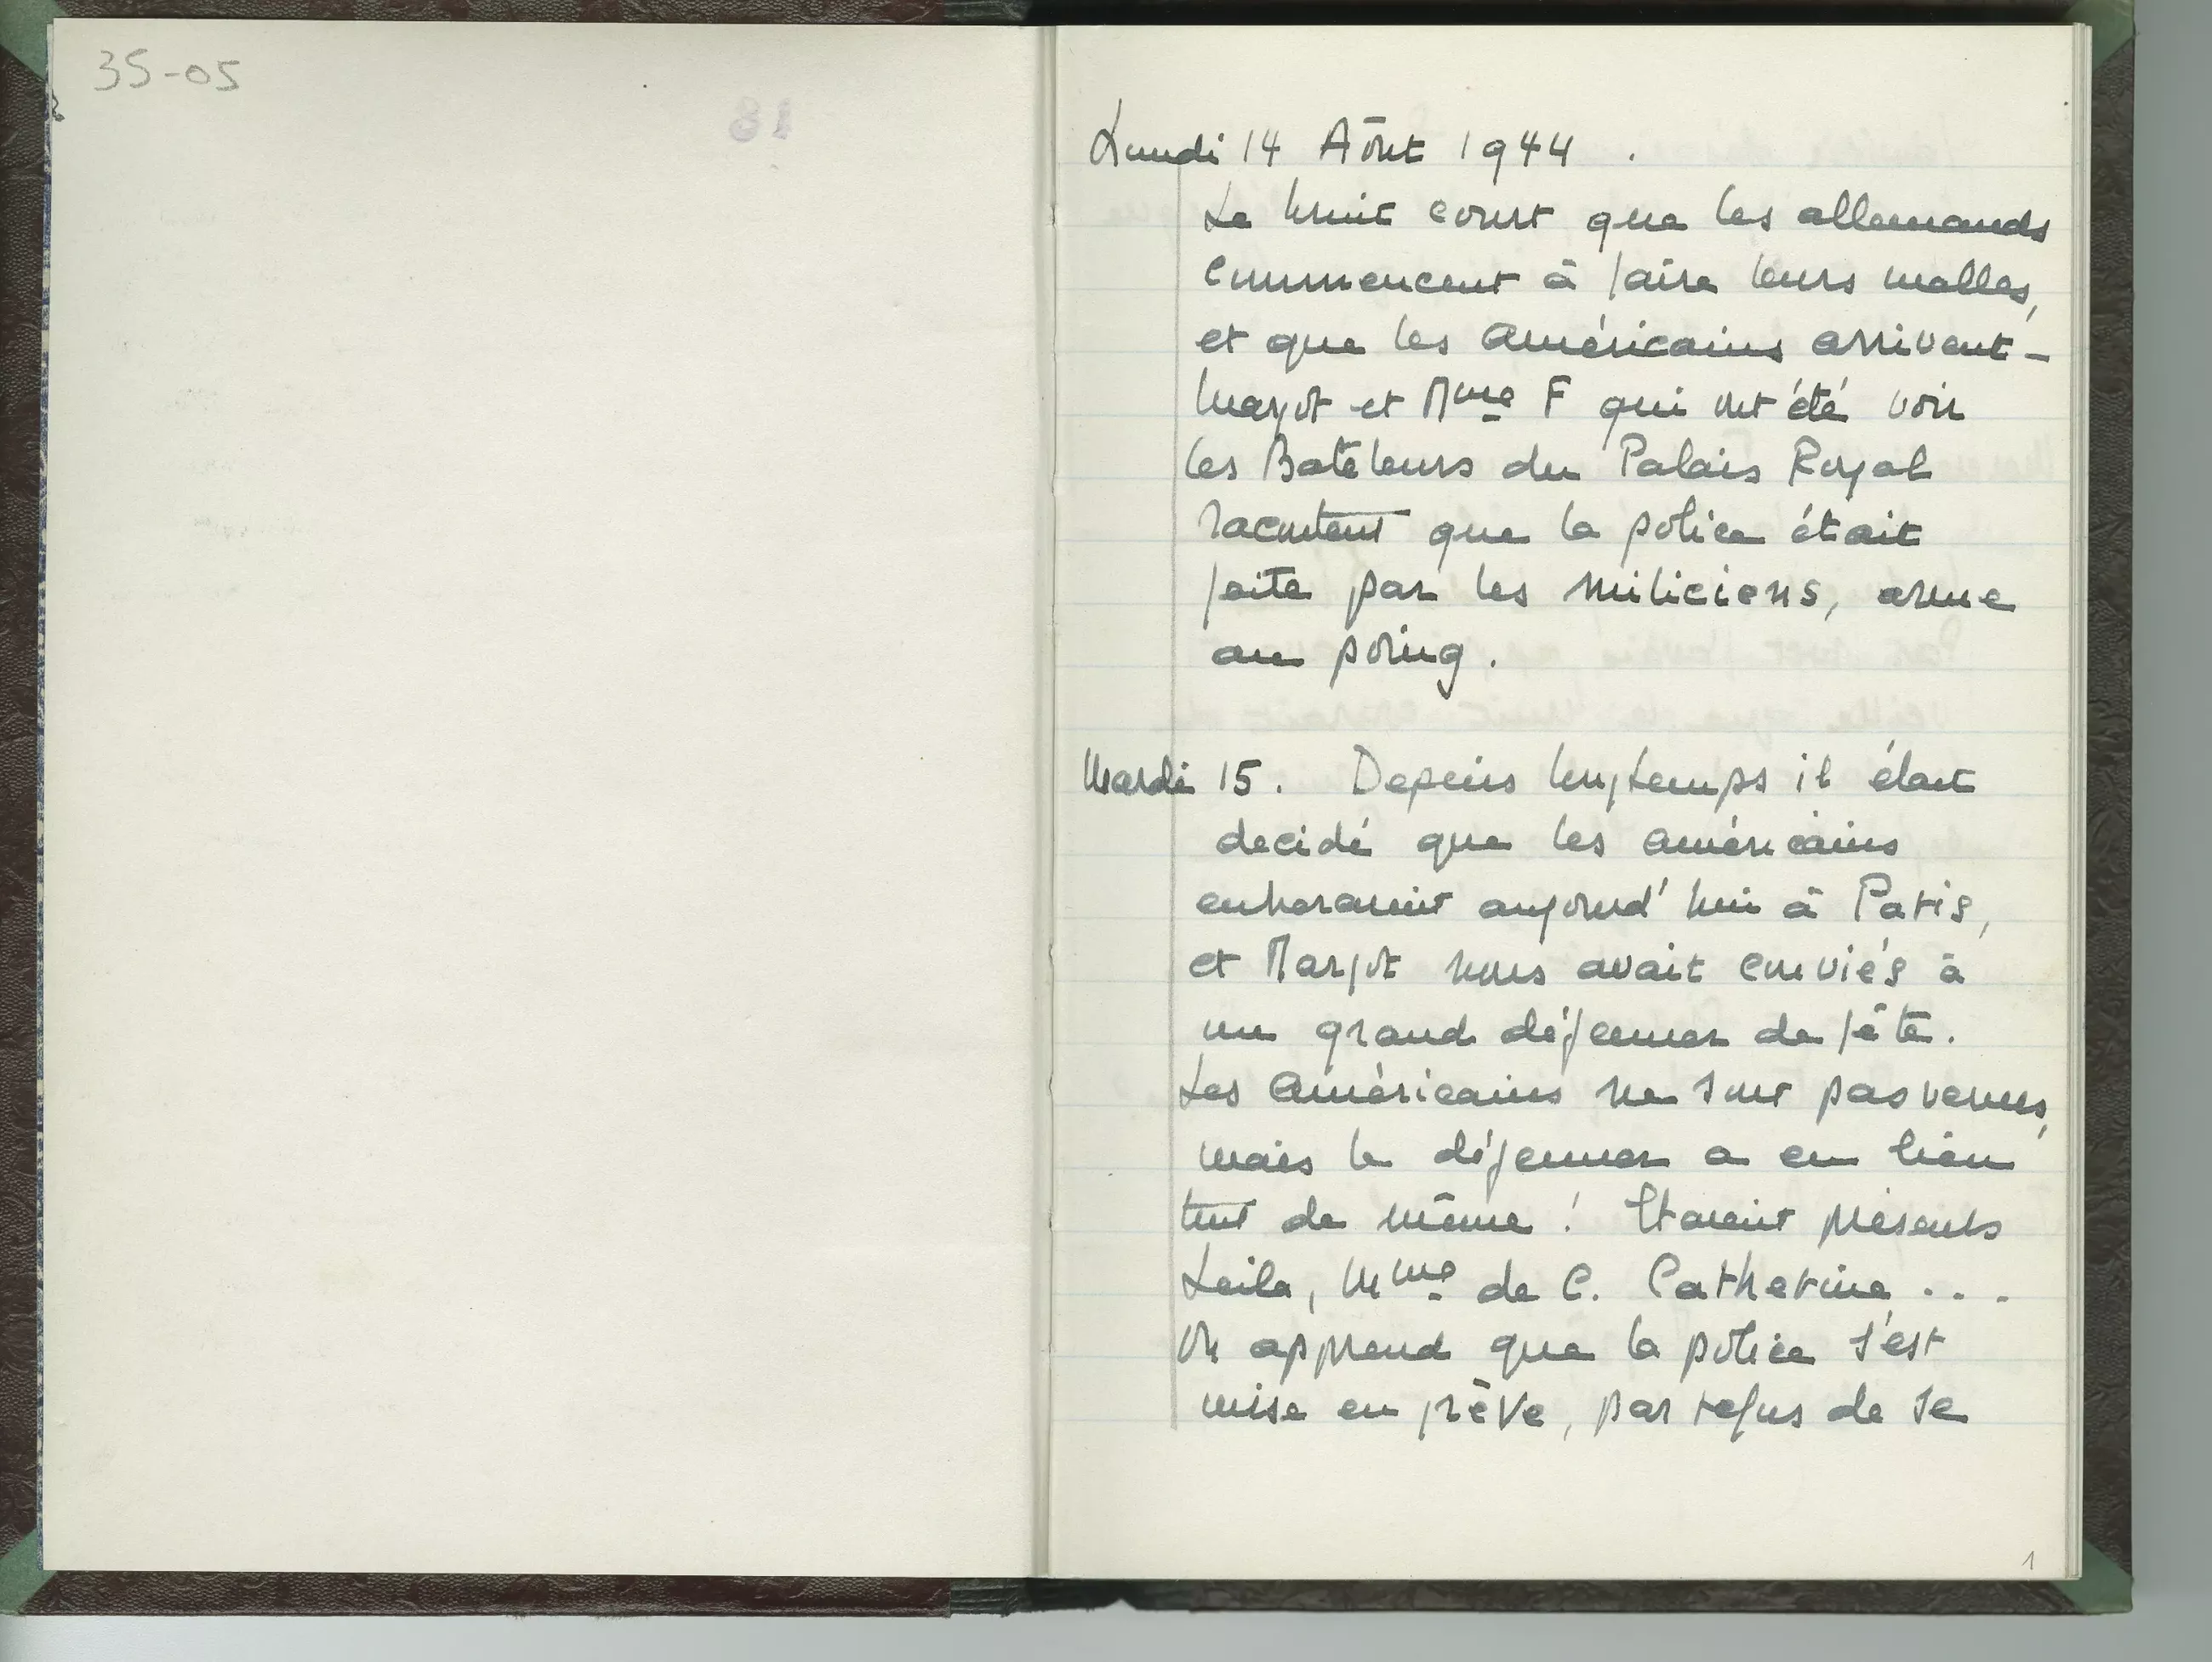 35-05
Lundi 14 Août 1944.
Le bruit court que les allemands
commencent à faire leurs malles,
et que les américains arrivent-
Margot et Mme F qui ont été voir
les Bateleurs du Palais Royal
racontent que la police était
faite par les miliciens, arme
au poing.
Mardi 15. Depuis longtemps il était
decidé que les américains
entreraient aujourd'hui à Paris,
et Margot nous avait conviés à
un grand déjeuner de fête.
Les américains ne sont pas venus,
mais le déjeuner a eu lieu
tout de même ! Etaient présents
Leila, Mme de C. Catherine...
On apprend que la police s'est
mise en grève, par refus de se
1